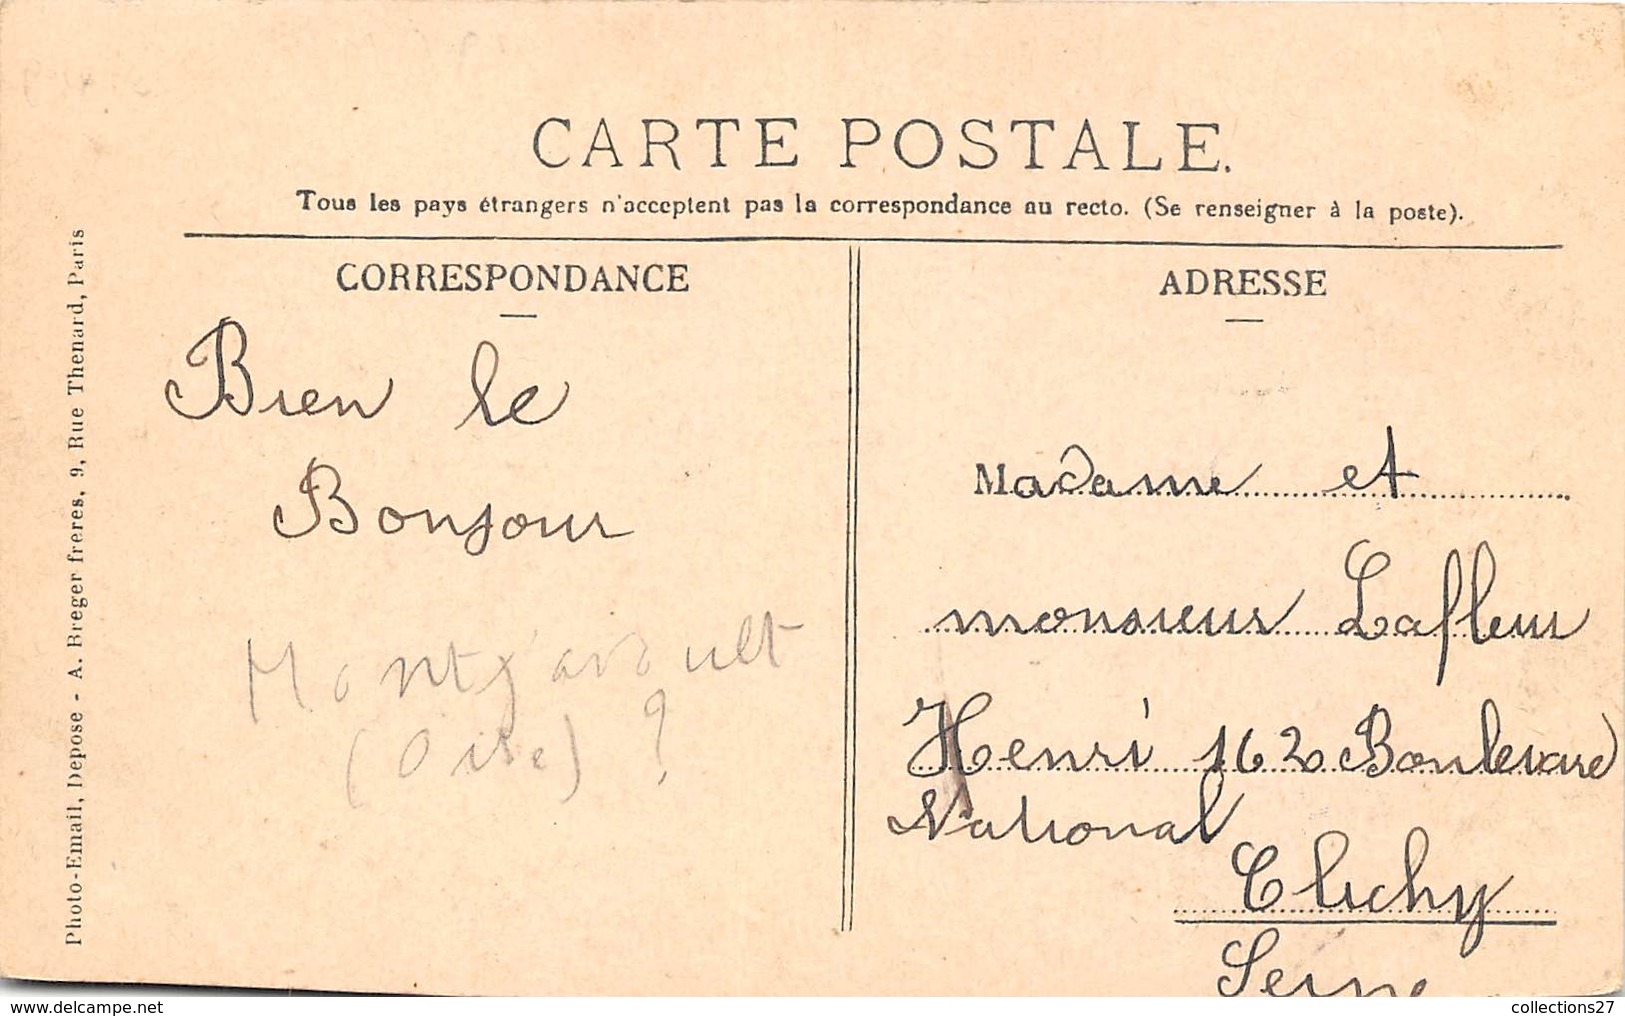 CARTE POSTALE.
Tous les pays étrangers n'acceptent pas la correspondance au recto. (Se renseigner à la poste).
CORRESPONDANCE
Bien le
Bonjour
Montjavoult
(Oise) ?
ADRESSE
Madame et
monsieur Lafleur
Henri 162 Boulevard
National
Clichy
Seine
Photo-Email, Depose - A. Breger freres, 9, Rue Thenard, Paris
https://www.delcampe.net
collections27